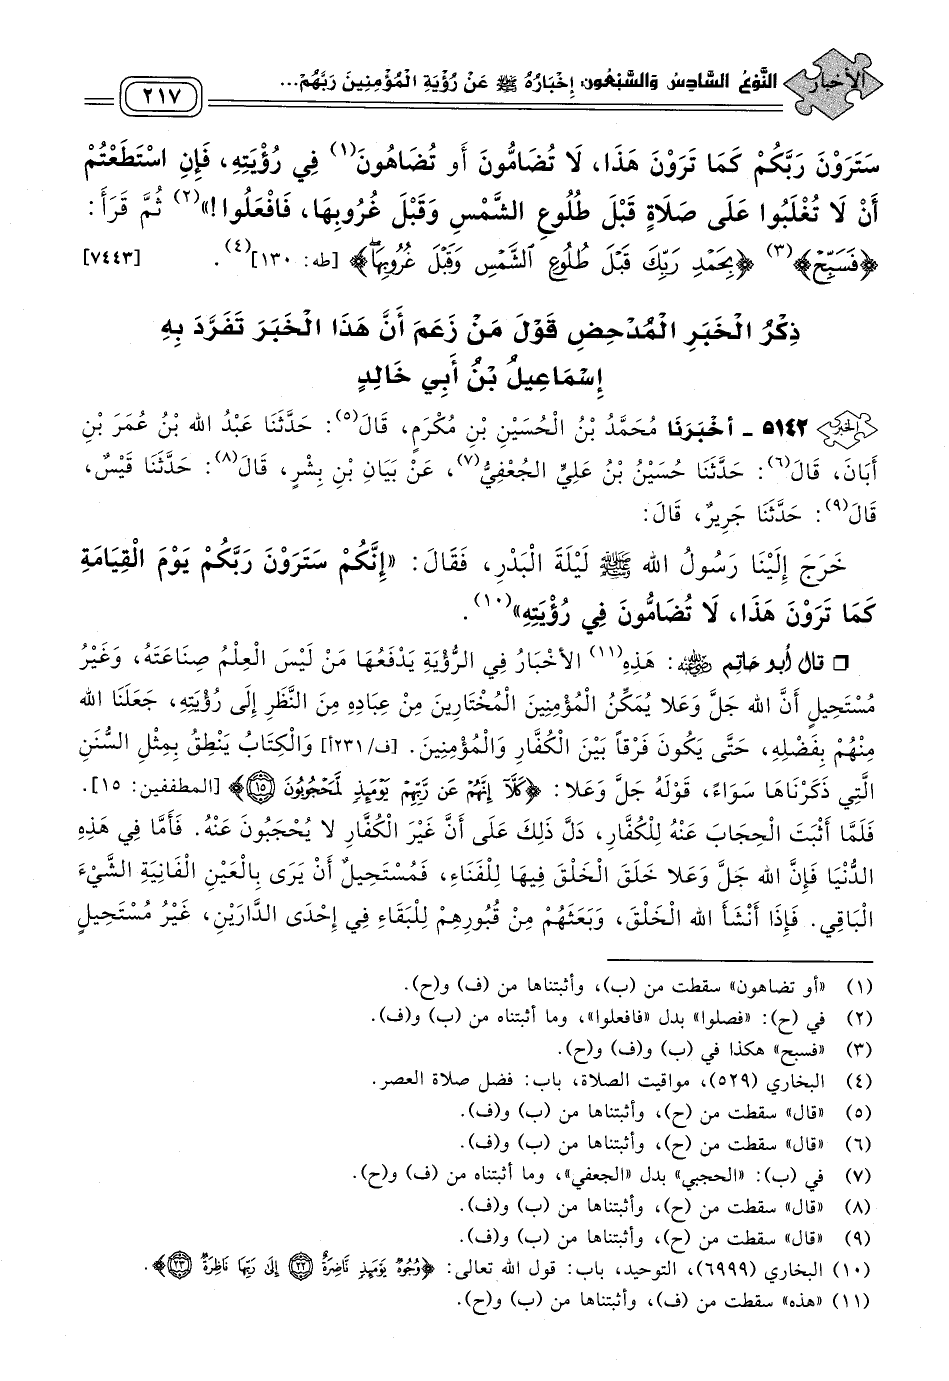 الأخبار النَّوْعُ السَّادِسُ وَالسَّبْعُونَ: إِخْبَارُهُ ﷺ عَنْ رُؤْيَةِ الْمُؤْمِنِينَ رَبَّهُمْ... ٢١٧
سَتَرَوْنَ رَبَّكُمْ كَمَا تَرَوْنَ هَذَا، لَا تُضَامُّونَ أَو تُضَاهُونَ(١) فِي رُؤْيَتِهِ، فَإِنِ اسْتَطَعْتُمْ
أَنْ لَا تُغْلَبُوا عَلَى صَلَاةٍ قَبْلَ طُلُوعِ الشَّمْسِ وَقَبْلَ غُرُوبِهَا، فَافْعَلُوا!»(٢) ثُمَّ قَرَأَ:
﴿فَسَبِّحْ﴾(٣) ﴿بِحَمْدِ رَبِّكَ قَبْلَ طُلُوعِ ٱلشَّمْسِ وَقَبْلَ غُرُوبِهَا﴾ [طه: ١٣٠](٤). [٧٤٤٣]
ذِكْرُ الْخَبَرِ الْمُدْحِضِ قَوْلَ مَنْ زَعَمَ أَنَّ هَذَا الْخَبَرَ تَفَرَّدَ بِهِ
إِسْمَاعِيلُ بْنُ أَبِي خَالِدٍ
الخبر ٥١٤٢ ـ أخْبَرَنَا مُحَمَّدُ بْنُ الْحُسَيْنِ بْنِ مُكْرَمٍ، قَالَ(٥): حَدَّثَنَا عَبْدُ الله بْنُ عُمَرَ بْنِ
أَبَانَ، قَالَ(٦): حَدَّثَنَا حُسَيْنُ بْنُ عَلِيٍّ الجُعْفِيُّ(٧)، عَنْ بَيَانِ بْنِ بِشْرٍ، قَالَ(٨): حَدَّثَنَا قَيْسٌ،
قَالَ(٩): حَدَّثَنَا جَرِيرٌ، قَالَ:
خَرَجَ إِلَيْنَا رَسُولُ الله ﷺ لَيْلَةَ الْبَدْرِ، فَقَالَ: «إِنَّكُمْ سَتَرَوْنَ رَبَّكُمْ يَوْمَ الْقِيَامَةِ
كَمَا تَرَوْنَ هَذَا، لَا تُضَامُّونَ فِي رُؤْيَتِهِ»(١٠).
❒ قال أبو حاتم رضي الله عنه: هَذِهِ(١١) الأخْبَارُ فِي الرُّؤْيَةِ يَدْفَعُهَا مَنْ لَيْسَ الْعِلْمُ صِنَاعَتَهُ، وَغَيْرُ
مُسْتَحِيلٍ أَنَّ الله جَلَّ وَعَلا يُمَكِّنُ الْمُؤْمِنِينَ الْمُخْتَارِينَ مِنْ عِبَادِهِ مِنَ النَّظَرِ إِلَى رُؤْيَتِهِ، جَعَلَنَا الله
مِنْهُمْ بِفَضْلِهِ، حَتَّى يَكُونَ فَرْقاً بَيْنَ الْكُفَّارِ وَالْمُؤْمِنِينَ. [ف/٢٣١أ] وَالْكِتَابُ يَنْطِقُ بِمِثْلِ السُّنَنِ
الَّتِي ذَكَرْنَاهَا سَوَاءً، قَوْلَهُ جَلَّ وَعَلا: ﴿كَلَّآ إِنَّهُمْ عَن رَّبِّهِمْ يَوْمَئِذٍ لَّمَحْجُوبُونَ ١٥﴾ [المطففين: ١٥].
فَلَمَّا أَثْبَتَ الْحِجَابَ عَنْهُ لِلْكُفَّارِ، دَلَّ ذَلِكَ عَلَى أَنَّ غَيْرَ الْكُفَّارِ لا يُحْجَبُونَ عَنْهُ. فَأَمَّا فِي هَذِهِ
الدُّنْيَا فَإِنَّ الله جَلَّ وَعَلا خَلَقَ الْخَلْقَ فِيهَا لِلْفَنَاءِ، فَمُسْتَحِيلٌ أَنْ يَرَى بِالْعَيْنِ الْفَانِيَةِ الشَّيْءَ
الْبَاقِي. فَإِذَا أَنْشَأَ الله الْخَلْقَ، وَبَعَثَهُمْ مِنْ قُبُورِهِمْ لِلْبَقَاءِ فِي إِحْدَى الدَّارَيْنِ، غَيْرُ مُسْتَحِيلٍ
(١) «أو تضاهون» سقطت من (ب)، وأثبتناها من (ف) و(ح).
(٢) في (ح): «فصلوا» بدل «فافعلوا»، وما أثبتناه من (ب) و(ف).
(٣) «فسبح» هكذا في (ب) و(ف) و(ح).
(٤) البخاري (٥٢٩)، مواقيت الصلاة، باب: فضل صلاة العصر.
(٥) «قال» سقطت من (ح)، وأثبتناها من (ب) و(ف).
(٦) «قال» سقطت من (ح)، وأثبتناها من (ب) و(ف).
(٧) في (ب): «الحجبي» بدل «الجعفي»، وما أثبتناه من (ف) و(ح).
(٨) «قال» سقطت من (ح)، وأثبتناها من (ب) و(ف).
(٩) «قال» سقطت من (ح)، وأثبتناها من (ب) و(ف).
(١٠) البخاري (٦٩٩٩)، التوحيد، باب: قول الله تعالى: ﴿وُجُوهٌ يَوْمَئِذٍ نَّاضِرَةٌ ٢٢ إِلَىٰ رَبِّهَا نَاظِرَةٌ ٢٣﴾.
(١١) «هذه» سقطت من (ف)، وأثبتناها من (ب) و(ح).